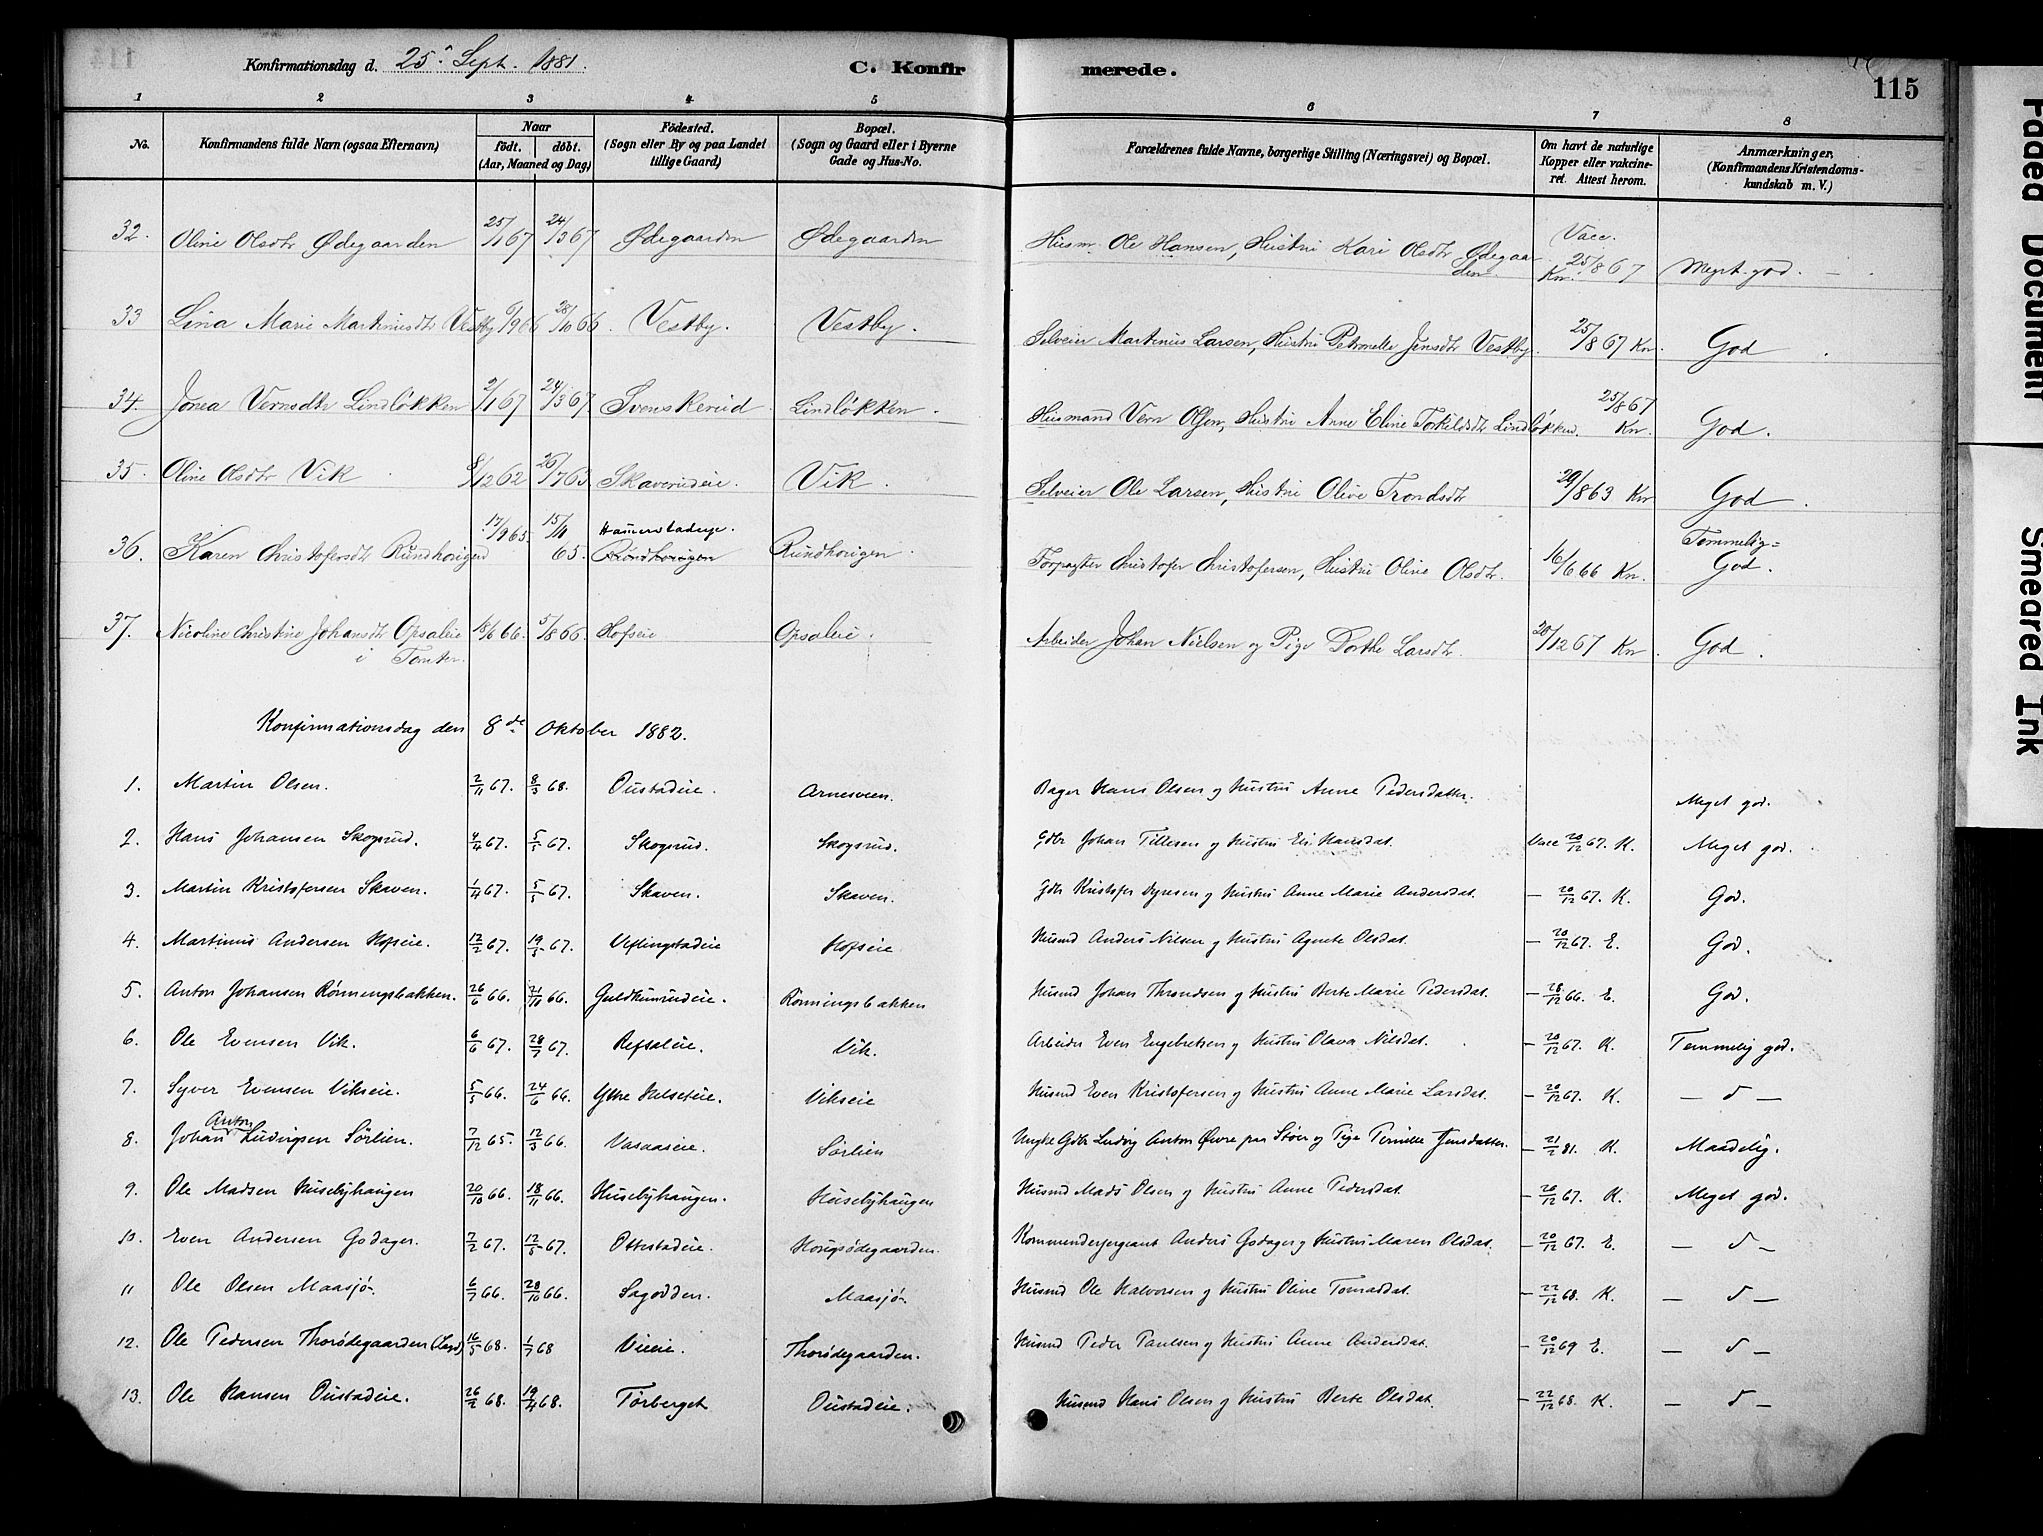 Konfirmationsdag d. 25. Sept. 1881.
C. Konfirmerede.
115
1 2 3 4 5 6 7 8
No. Konfirmandens fulde Navn (ogsaa Efternavn) Naar født. døbt. (Aar, Maaned og Dag) Fødested. (Sogn eller By og paa Landet tillige Gaard) Bopæl. (Sogn og Gaard eller i Byerne Gade og Hus-No. Forældrenes fulde Navne, borgerlige Stilling (Næringsvei) og Bopæl. Om havt de naturlige Kopper eller vakcineret. Attest herom. Anmærkninger, (Konfirmandens Kristendomskundskab m. V.)
32. Oline Olsdtr Ødegaarden 25/1 67 24/3 67 Ødegaarden Ødegaarden Husm. Ole Hansen, Hustru Kari Olsdtr Ødegaarden. Vacc. 25/8 67 Kn. Meget god.
33 Lina Marie Martinusdtr Vestby 6/9 66 28/10 66. Vestby. Vestby. Selveier Martinus Larsen, Hustru Petronelle Jensdtr Vestby. 25/8 67 Kn. God
34. Jonea Vernsdtr Lindløkken 2/1 67 24/3 67 Svenskerud Lindløkken. Husmand Vern Olsen, Hustru Anne Eline Torkildsdtr Lindløkken. 25/8 67 Kn. God.
35. Oline Olsdtr Vik 8/12 62 26/7 63. Skaverudeie. Vik. Selveier Ole Larsen, Hustru Olive Trondsdtr 29/8 63 Kn God.
36. Karen Christofersdtr Rundhaugen 17/9 65. 15/11 65. Rundhaugen Forpagter Christofer Christofersen, Hustru Oline Olsdtr. 16/6 66 Kn. Temmelig God.
37. Nicoline Christine Johansdtr Opsaleie i Tomter. 18/6 66. 5/8 66. Hofseie Opsaleie. Arbeider Johan Nielsen og Pige Dorthe Larsdtr. 20/12 67 Kn God.
Konfirmationsdag den 8de Oktober 1882.
1. Martin Olsen. 2/11 67. 8/3 68. Oustadeie. Arnesveen. Bager Hans Olsen og Hustru Anne Pedersdatter. Meget god.
2. Hans Johansen Skogsrud. 4/4 67. 5/5 67. Skogsrud. Skogsrud. Gdbr Johan Tillesen og Hustru Eli Hansdat. Vacc 20/12 67. K. Meget god.
3. Martin Kristofersen Skaven. 1/4 67. 5/5 67. Skaven. Skaven. Gdbr Kristofer Syversen og Hustru Anne Marie Andersdat. — 20/12 67. K. God.
4. Martinus Andersen Hofseie. 12/2 67. 19/5 67. Veflingstadeie Hofseie Husmd Anders Nilsen og Hustru Agnete Olsdat. — 20/12 67. E. God.
5. Anton Johansen Rønningsbakken. 26/6 66. 21/10 66. Guldkunrudeie. Rønningsbakken Husmd Johan Throndsen og Hustru Berte Marie Pedersdat. — 28/12 66. E. God.
6. Ole Evensen Vik. 6/6 67. 28/7 67. Refsaleie. Vik. Arbeider Even Engebretsen og Hustru Olava Nilsdat. — 20/12 67. K. Temmelig god.
7. Syver Evensen Vikseie. 5/5 66. 24/6 66. Ytre Halseteie. Vikseie Husmd Even Kristofersen og Hustru Anne Marie Larsdat. — 20/12 67. K. — 5 —
8. Johan Anton Ludvigsen Sørlien. 7/12 65. 12/3 66. Vasaaseie. Sørlien Ungkr Gdbr Ludvig Anton Øvre paa Stöer og Pige Pernille Jensdatter. — 21/2 81. K. Maadelig.
9. Ole Madsen Husebyhaugen 20/10 66. 18/11 66. Husebyhaugen. Husebyhaugen Husmd Mads Olsen og Hustru Anne Pedersdat. — 20/12 67. K. Meget god.
10. Even Andersen Godager. 7/2 67. 12/5 67. Ottestadeie. Kommendersergeant Anders Godager og Hustru Maren Olsdat. — 20/12 67. E. — 5 —
11 Ole Olsen Maasjø. 6/7 66. 28/10 66. Sagodden. Maasjø. Husmd Ole Halvorsen og Hustru Oline Tomasdat. — 22/12 68. K. — 5 —
12. Ole Pedersen Thorødegaarden (Land) 16/5 68. 1/7 68 Vieie. Thorødegaarden. Husmd Peder Paulsen og Hustru Anne Andersdat. — 20/12 69 E. — 5 —
13. Ole Hansen Oustadeie. 26/2 68. 19/4 68. Torberget Oustadeie. Husmd Hans Olsen og Hustru Berte Olsdat. — 22/12 68. K. — 5 —
Faded Document Smeared Ink